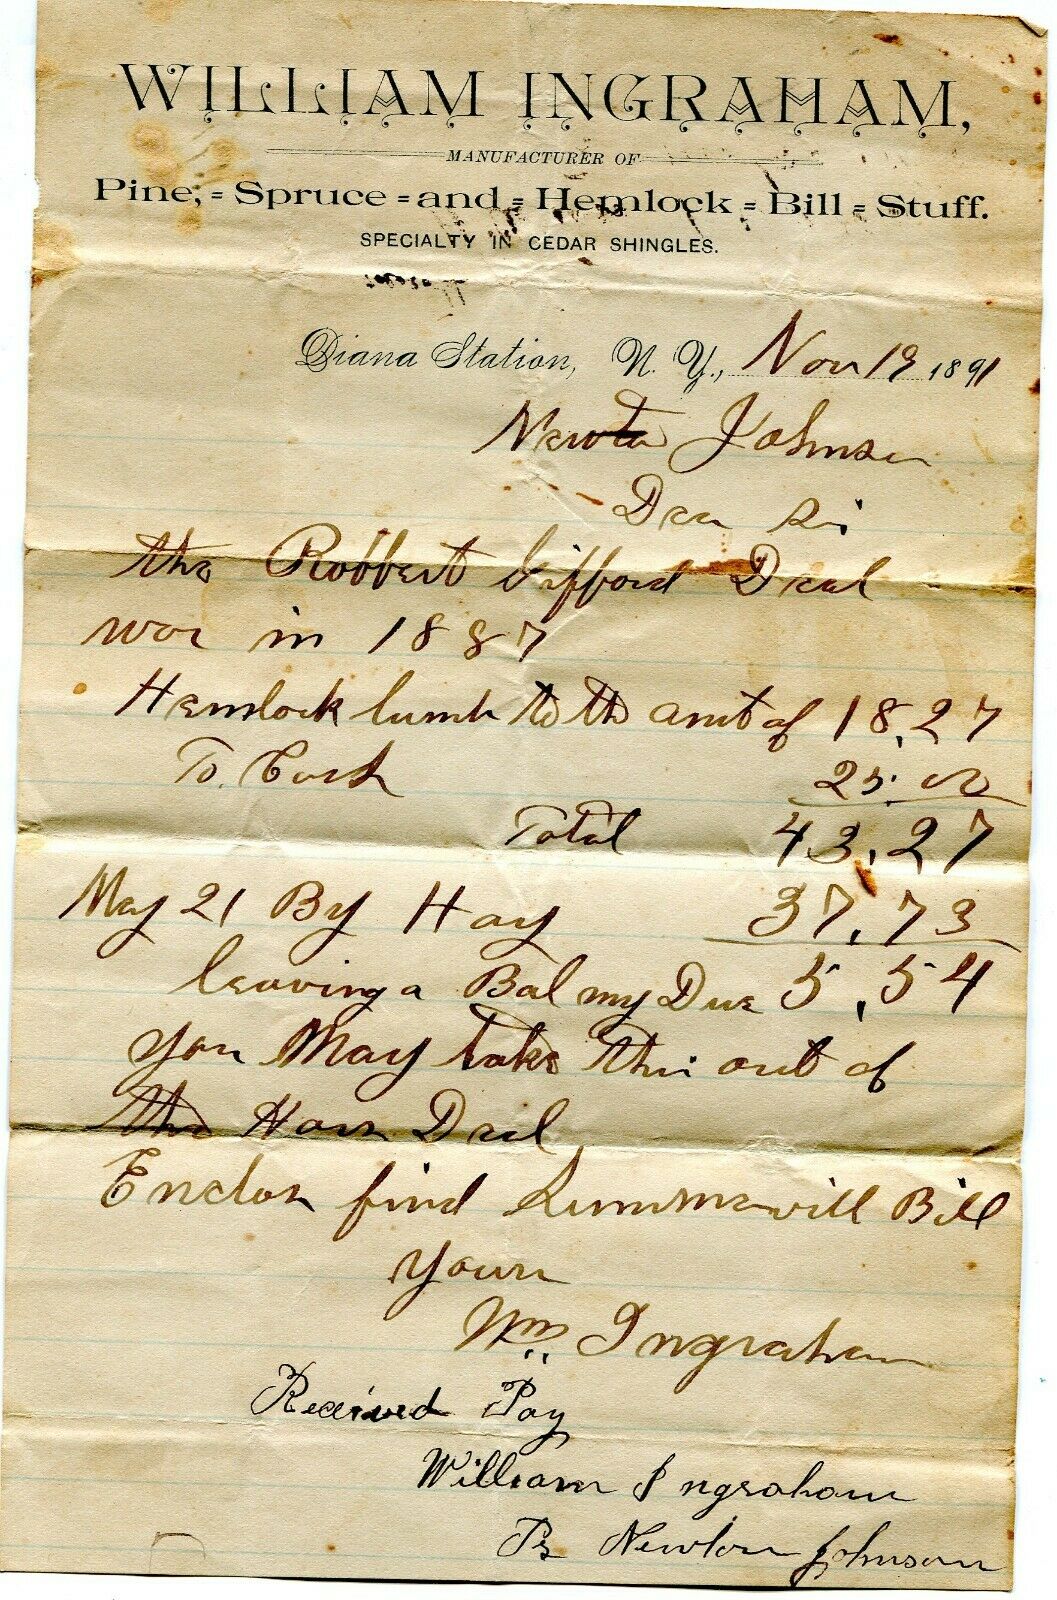 WILLIAM INGRAHAM,
MANUFACTURER OF
Pine, = Spruce = and = Hemlock = Bill = Stuff.
SPECIALTY IN CEDAR SHINGLES.
Diana Station, N. Y., Nov 19 1891
Newton Johnson
Dear Sir
the Robbert Gifford Deal
was in 1887
Hemlock lumb to the amt of 18,27
To Cash 25.00
Total 43,27
May 21 By Hay 37,73
leaving a Bal my Due 5,54
you May take this out of
the Deal
Enclos find Bill
Yours
Wm Ingraham
Received Pay
William Ingraham
Pr Newton Johnson